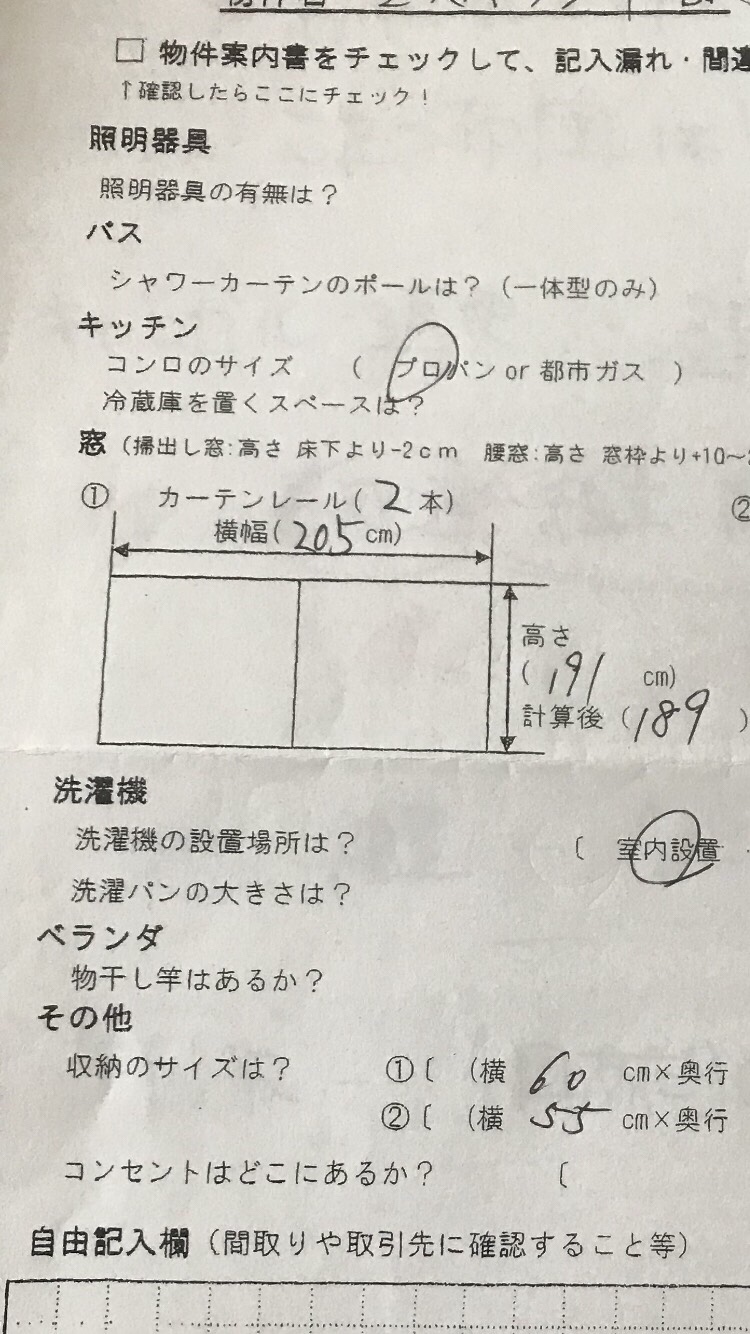 □ 物件案内書をチェックして、記入漏れ・間違
↑確認したらここにチェック！
照明器具
照明器具の有無は？
バス
シャワーカーテンのポールは？（一体型のみ）
キッチン
コンロのサイズ （ プロパン or 都市ガス ）
冷蔵庫を置くスペースは？
窓（掃出し窓：高さ 床下より-2cm 腰窓：高さ 窓枠より+10～
① カーテンレール（ 2 本） ②
横幅（ 205 cm）
高さ
（ 191 cm）
計算後（189 ）
洗濯機
洗濯機の設置場所は？ 〔 室内設置
洗濯パンの大きさは？
ベランダ
物干し竿はあるか？
その他
収納のサイズは？ ①〔 （横 60 cm×奥行
②〔 （横 55 cm×奥行
コンセントはどこにあるか？ 〔
自由記入欄（間取りや取引先に確認すること等）